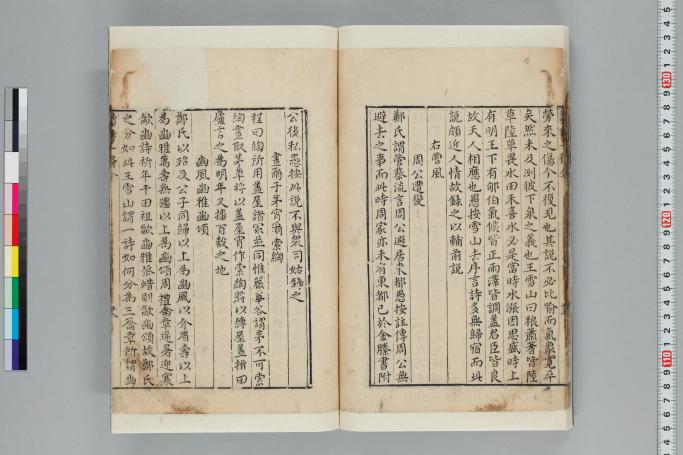 勞來之傷今不復見也其說不必比喻而氣象寛平
矣然未及浏彼下泉之義也王雪山曰稂蕭蓍皆陸
草陸草畏水田禾喜水必是當時水漲因思盛時上
有明王下有郇伯氣候皆正雨澤皆調蓋君臣皆良
故天人相應也愚按雪山去序言詩多無歸宿而此
說頗近人情故錄之以輔前說
右曹風
周公遭變
鄭氏謂管蔡流言周公避居東都愚按註傳周公無
避去之事而此時周家亦未有東都已於金縢書附
公後私愚按此說不與衆同姑錄之
晝爾于茅宵爾索綯
程曰綯所用蓋屋諸家並同惟嚴華谷謂茅不可索
綯晝取茅草將以蓋屋宵作索綯將以縳屋蓋櫛田
廬言之為明年又播百穀之地
豳風豳雅豳頌
鄭氏以殆及公子同歸以上為豳風以介眉壽以上
為豳雅萬壽無疆以上為豳頌周禮籥章逆暑迎寒
歙豳詩祈年于田祖歙豳雅祭蜡則歙豳頌故鄭氏
之分如此王雪山謂一詩如何分為三籥章所謂豳